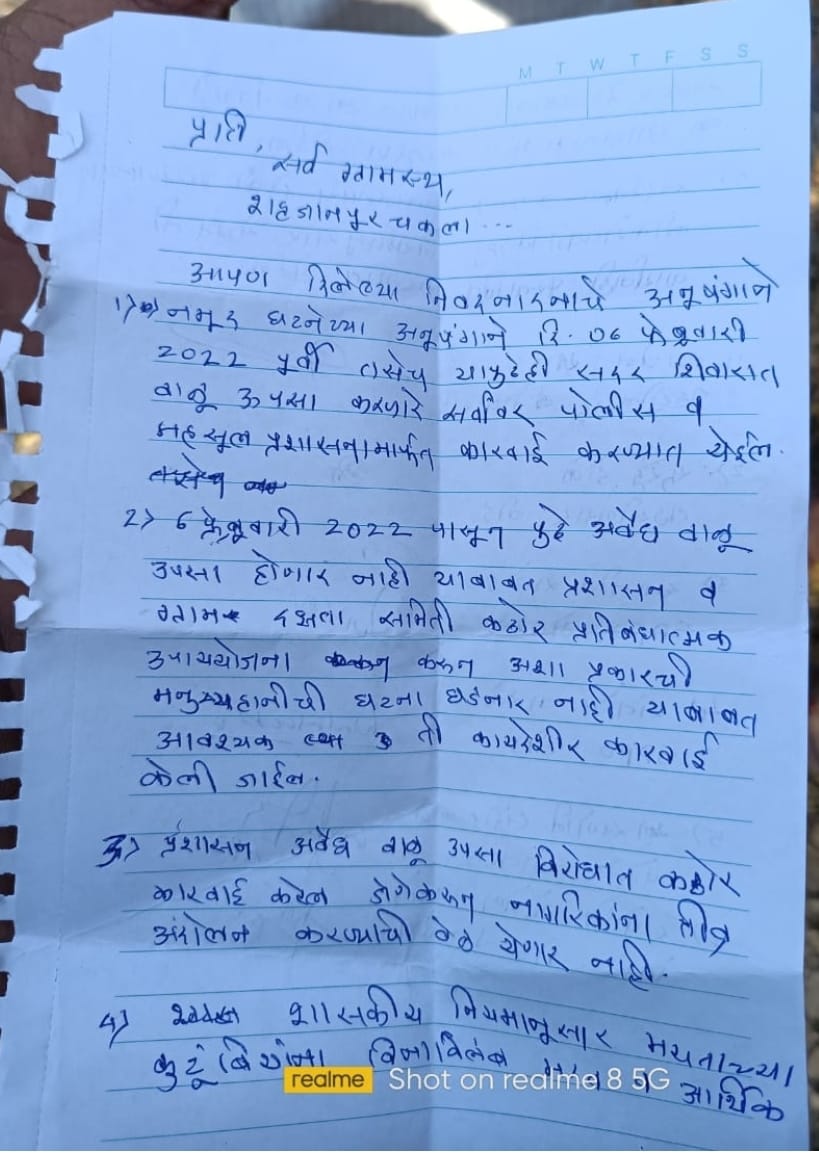 M T W T F S S
प्रति,
सर्व ग्रामस्थ,
शहजानपुर चकला...
आपण दिलेल्या अनुषंगाने
1) नमूद घटनेच्या अनुषंगाने दि. 06 फेब्रुवारी
2022 पूर्वी तसेच यापुढेही सदर शिवारात
वाळू उपसा करणारे सर्वांवर पोलीस व
महसूल प्रशासनामार्फत कारवाई करण्यात येईल.
2) 6 फेब्रुवारी 2022 पासून पुढे अवैध वाळू
उपसा होणार नाही याबाबत प्रशासन व
ग्राम दक्षता समिती कठोर प्रतिबंधात्मक
उपाययोजना करून अशा प्रकारची
मनुष्यहानीची घटना घडनार नाही याबाबत
आवश्यक ती कायदेशीर कारवाई
केली जाईल.
3) प्रशासन अवैध वाळू उपसा विरोधात कठोर
कारवाई करेल जेणेकरून नागरिकांना तीव्र
आंदोलन करण्याची वेळ येणार नाही.
4) शासकीय नियमानुसार मयताच्या
कुटूंबियांना विनाविलंब आर्थिक
realme Shot on realme 8 5G